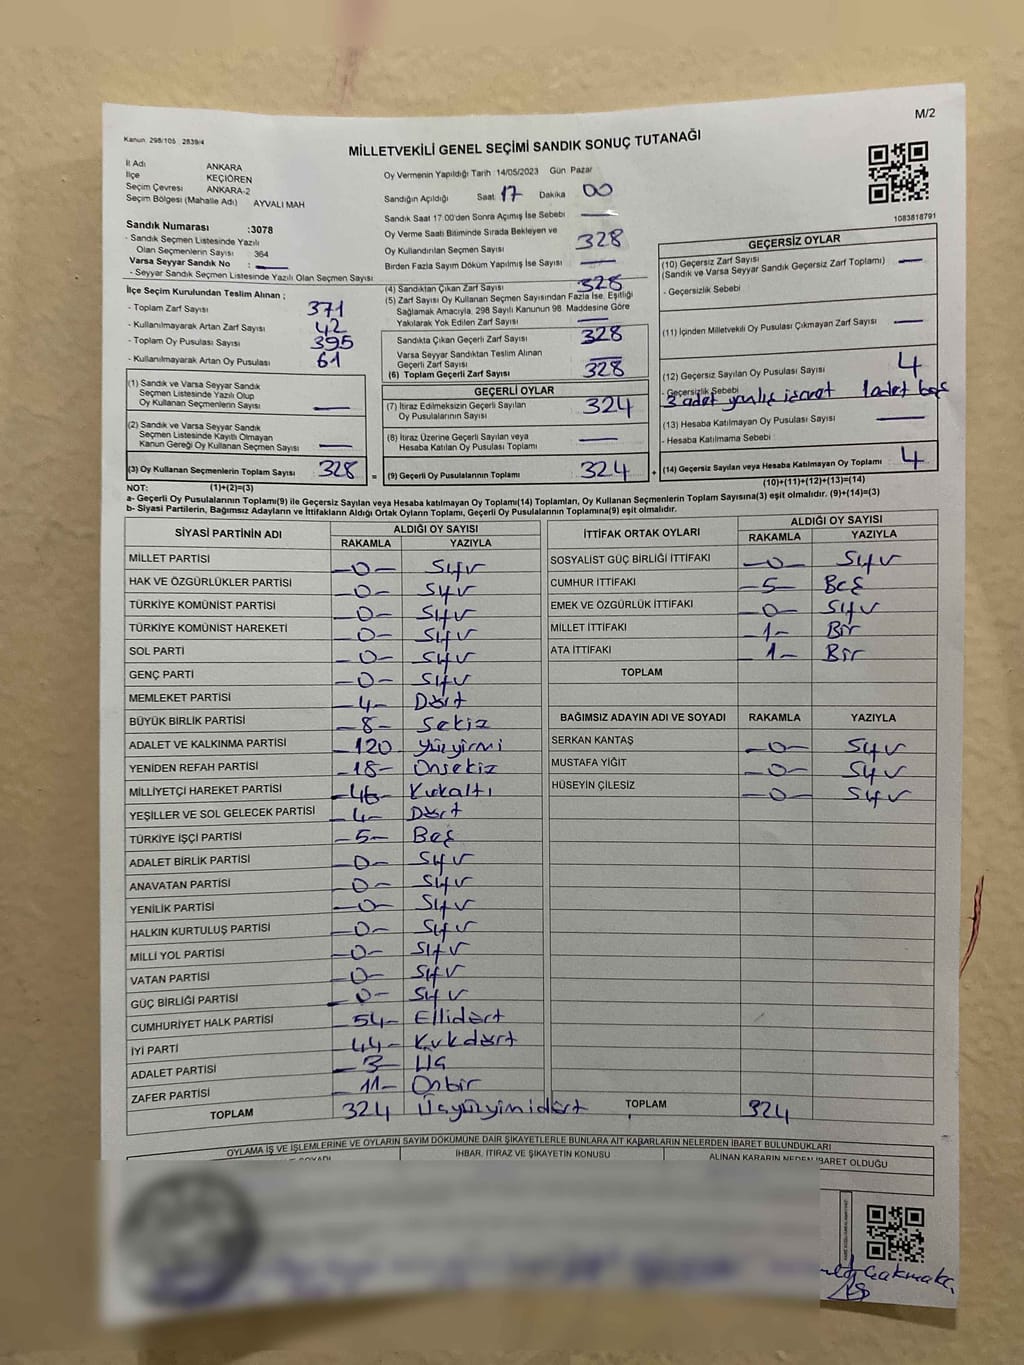 M/2
Kanun 298/105 2839/4
MİLLETVEKİLİ GENEL SEÇİMİ SANDIK SONUÇ TUTANAĞI
İl Adı ANKARA
İlçe KEÇİÖREN
Seçim Çevresi ANKARA-2
Seçim Bölgesi (Mahalle Adı) AYVALI MAH
Sandık Numarası :3078
- Sandık Seçmen Listesinde Yazılı
Olan Seçmenlerin Sayısı 364
Varsa Seyyar Sandık No :
- Seyyar Sandık Seçmen Listesinde Yazılı Olan Seçmen Sayısı
İlçe Seçim Kurulundan Teslim Alınan ;
- Toplam Zarf Sayısı 371
- Kullanılmayarak Artan Zarf Sayısı 42
- Toplam Oy Pusulası Sayısı 395
- Kullanılmayarak Artan Oy Pusulası 61
(1) Sandık ve Varsa Seyyar Sandık
Seçmen Listesinde Yazılı Olup
Oy Kullanan Seçmenlerin Sayısı —
(2) Sandık ve Varsa Seyyar Sandık
Seçmen Listesinde Kayıtlı Olmayan
Kanun Gereği Oy Kullanan Seçmen Sayısı —
(3) Oy Kullanan Seçmenlerin Toplam Sayısı 328 =
Oy Vermenin Yapıldığı Tarih 14/05/2023 Gün Pazar
Sandığın Açıldığı Saat 17 Dakika 00
Sandık Saat 17:00'den Sonra Açılmış İse Sebebi —
Oy Verme Saati Bitiminde Sırada Bekleyen ve
Oy Kullandırılan Seçmen Sayısı 328
Birden Fazla Sayım Döküm Yapılmış İse Sayısı —
(4) Sandıktan Çıkan Zarf Sayısı 328
(5) Zarf Sayısı Oy Kullanan Seçmen Sayısından Fazla İse, Eşitliği
Sağlamak Amacıyla, 298 Sayılı Kanunun 98. Maddesine Göre
Yakılarak Yok Edilen Zarf Sayısı —
Sandıkta Çıkan Geçerli Zarf Sayısı 328
Varsa Seyyar Sandıktan Teslim Alınan
Geçerli Zarf Sayısı —
(6) Toplam Geçerli Zarf Sayısı 328
GEÇERLİ OYLAR
(7) İtiraz Edilmeksizin Geçerli Sayılan
Oy Pusulalarının Sayısı 324
(8) İtiraz Üzerine Geçerli Sayılan veya
Hesaba Katılan Oy Pusulası Toplamı —
(9) Geçerli Oy Pusulalarının Toplamı 324 +
1083818791
GEÇERSİZ OYLAR
(10) Geçersiz Zarf Sayısı
(Sandık ve Varsa Seyyar Sandık Geçersiz Zarf Toplamı) —
- Geçersizlik Sebebi
(11) İçinden Milletvekili Oy Pusulası Çıkmayan Zarf Sayısı —
(12) Geçersiz Sayılan Oy Pusulası Sayısı 4
- Geçersizlik Sebebi
3 adet yanlış işaret 1 adet boş
(13) Hesaba Katılmayan Oy Pusulası Sayısı —
- Hesaba Katılmama Sebebi
(14) Geçersiz Sayılan veya Hesaba Katılmayan Oy Toplamı 4
NOT: (1)+(2)=(3) (10)+(11)+(12)+(13)=(14)
a- Geçerli Oy Pusulalarının Toplamı(9) ile Geçersiz Sayılan veya Hesaba katılmayan Oy Toplamı(14) Toplamları, Oy Kullanan Seçmenlerin Toplam Sayısına(3) eşit olmalıdır. (9)+(14)=(3)
b- Siyasi Partilerin, Bağımsız Adayların ve İttifakların Aldığı Ortak Oyların Toplamı, Geçerli Oy Pusulalarının Toplamına(9) eşit olmalıdır.
SİYASİ PARTİNİN ADI ALDIĞI OY SAYISI
RAKAMLA YAZIYLA
MİLLET PARTİSİ —0— Sıfır
HAK VE ÖZGÜRLÜKLER PARTİSİ —0— Sıfır
TÜRKİYE KOMÜNİST PARTİSİ —0— Sıfır
TÜRKİYE KOMÜNİST HAREKETİ —0— Sıfır
SOL PARTİ —0— Sıfır
GENÇ PARTİ —0— Sıfır
MEMLEKET PARTİSİ —4— Dört
BÜYÜK BİRLİK PARTİSİ —8— Sekiz
ADALET VE KALKINMA PARTİSİ —120— Yüzyirmi
YENİDEN REFAH PARTİSİ —18— Onsekiz
MİLLİYETÇİ HAREKET PARTİSİ —46— Kırkaltı
YEŞİLLER VE SOL GELECEK PARTİSİ —4— Dört
TÜRKİYE İŞÇİ PARTİSİ —5— Beş
ADALET BİRLİK PARTİSİ —0— Sıfır
ANAVATAN PARTİSİ —0— Sıfır
YENİLİK PARTİSİ —0— Sıfır
HALKIN KURTULUŞ PARTİSİ —0— Sıfır
MİLLİ YOL PARTİSİ —0— Sıfır
VATAN PARTİSİ —0— Sıfır
GÜÇ BİRLİĞİ PARTİSİ —0— Sıfır
CUMHURİYET HALK PARTİSİ —54— Ellidört
İYİ PARTİ —44— Kırkdört
ADALET PARTİSİ —3— Üç
ZAFER PARTİSİ —11— Onbir
TOPLAM 324 Üçyüzyirmidört
İTTİFAK ORTAK OYLARI ALDIĞI OY SAYISI
RAKAMLA YAZIYLA
SOSYALİST GÜÇ BİRLİĞİ İTTİFAKI —0— Sıfır
CUMHUR İTTİFAKI —5— Beş
EMEK VE ÖZGÜRLÜK İTTİFAKI —0— Sıfır
MİLLET İTTİFAKI —1— Bir
ATA İTTİFAKI —1— Bir
TOPLAM
BAĞIMSIZ ADAYIN ADI VE SOYADI RAKAMLA YAZIYLA
SERKAN KANTAŞ —0— Sıfır
MUSTAFA YİĞİT —0— Sıfır
HÜSEYİN ÇİLESİZ —0— Sıfır
TOPLAM 324
OYLAMA İŞ VE İŞLEMLERİNE VE OYLARIN SAYIM DÖKÜMÜNE DAİR ŞİKAYETLERLE BUNLARA AİT KARARLARIN NELERDEN İBARET BULUNDUKLARI
İHBAR, İTİRAZ VE ŞİKAYETİN KONUSU
ALINAN KARARIN NEDEN İBARET OLDUĞU